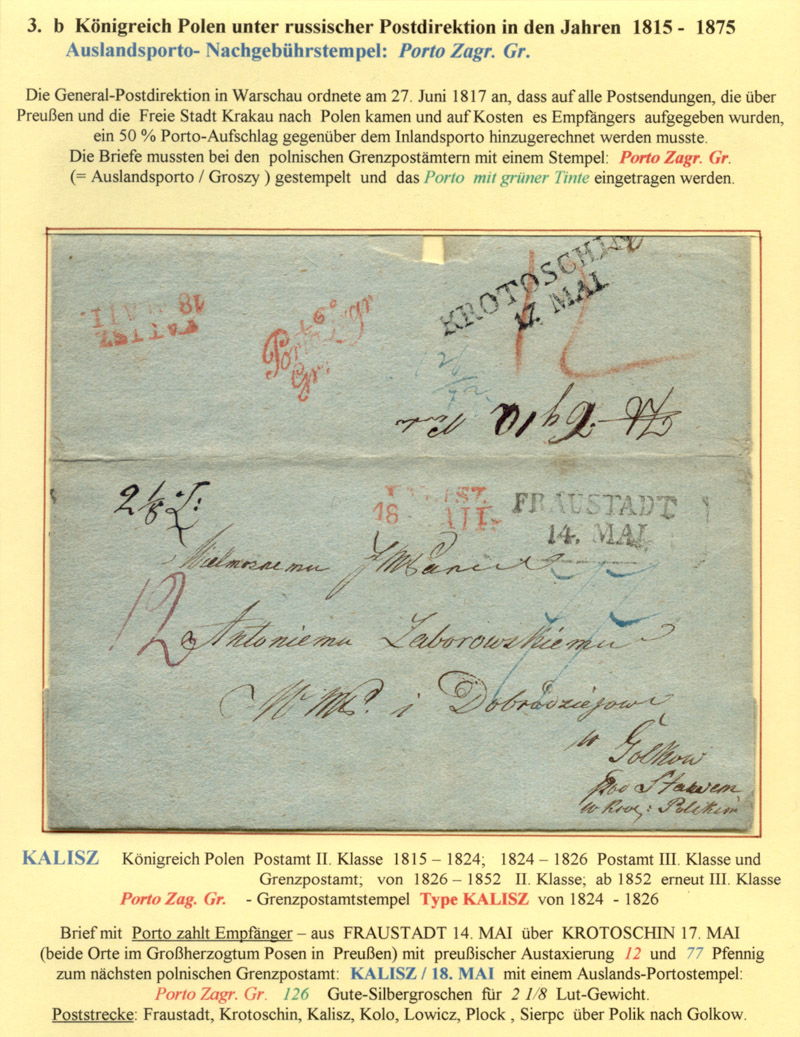 3. b Königreich Polen unter russischer Postdirektion in den Jahren 1815 - 1875
Auslandsporto- Nachgebührstempel: Porto Zagr. Gr.
Die General-Postdirektion in Warschau ordnete am 27. Juni 1817 an, dass auf alle Postsendungen, die über
Preußen und die Freie Stadt Krakau nach Polen kamen und auf Kosten es Empfängers aufgegeben wurden,
ein 50 % Porto-Aufschlag gegenüber dem Inlandsporto hinzugerechnet werden musste.
Die Briefe mussten bei den polnischen Grenzpostämtern mit einem Stempel: Porto Zagr. Gr.
(= Auslandsporto / Groszy ) gestempelt und das Porto mit grüner Tinte eingetragen werden.
KROTOSCHIN
17. MAI
12
Porto Zagr
Gr.
18
2 1/8 L:
18 MAII.
FRAUSTADT
14. MAI
Wielmoznemu JMPanu
12
Antoniemu Zaborowskiemu
77
W MP. i Dobrodziejowi
w Golkow
KALISZ Königreich Polen Postamt II. Klasse 1815 – 1824; 1824 – 1826 Postamt III. Klasse und
Grenzpostamt; von 1826 – 1852 II. Klasse; ab 1852 erneut III. Klasse
Porto Zag. Gr. - Grenzpostamtstempel Type KALISZ von 1824 - 1826
Brief mit Porto zahlt Empfänger – aus FRAUSTADT 14. MAI über KROTOSCHIN 17. MAI
(beide Orte im Großherzogtum Posen in Preußen) mit preußischer Austaxierung 12 und 77 Pfennig
zum nächsten polnischen Grenzpostamt: KALISZ / 18. MAI mit einem Auslands-Portostempel:
Porto Zagr. Gr. 126 Gute-Silbergroschen für 2 1/8 Lut-Gewicht.
Poststrecke: Fraustadt, Krotoschin, Kalisz, Kolo, Lowicz, Plock , Sierpc über Polik nach Golkow.